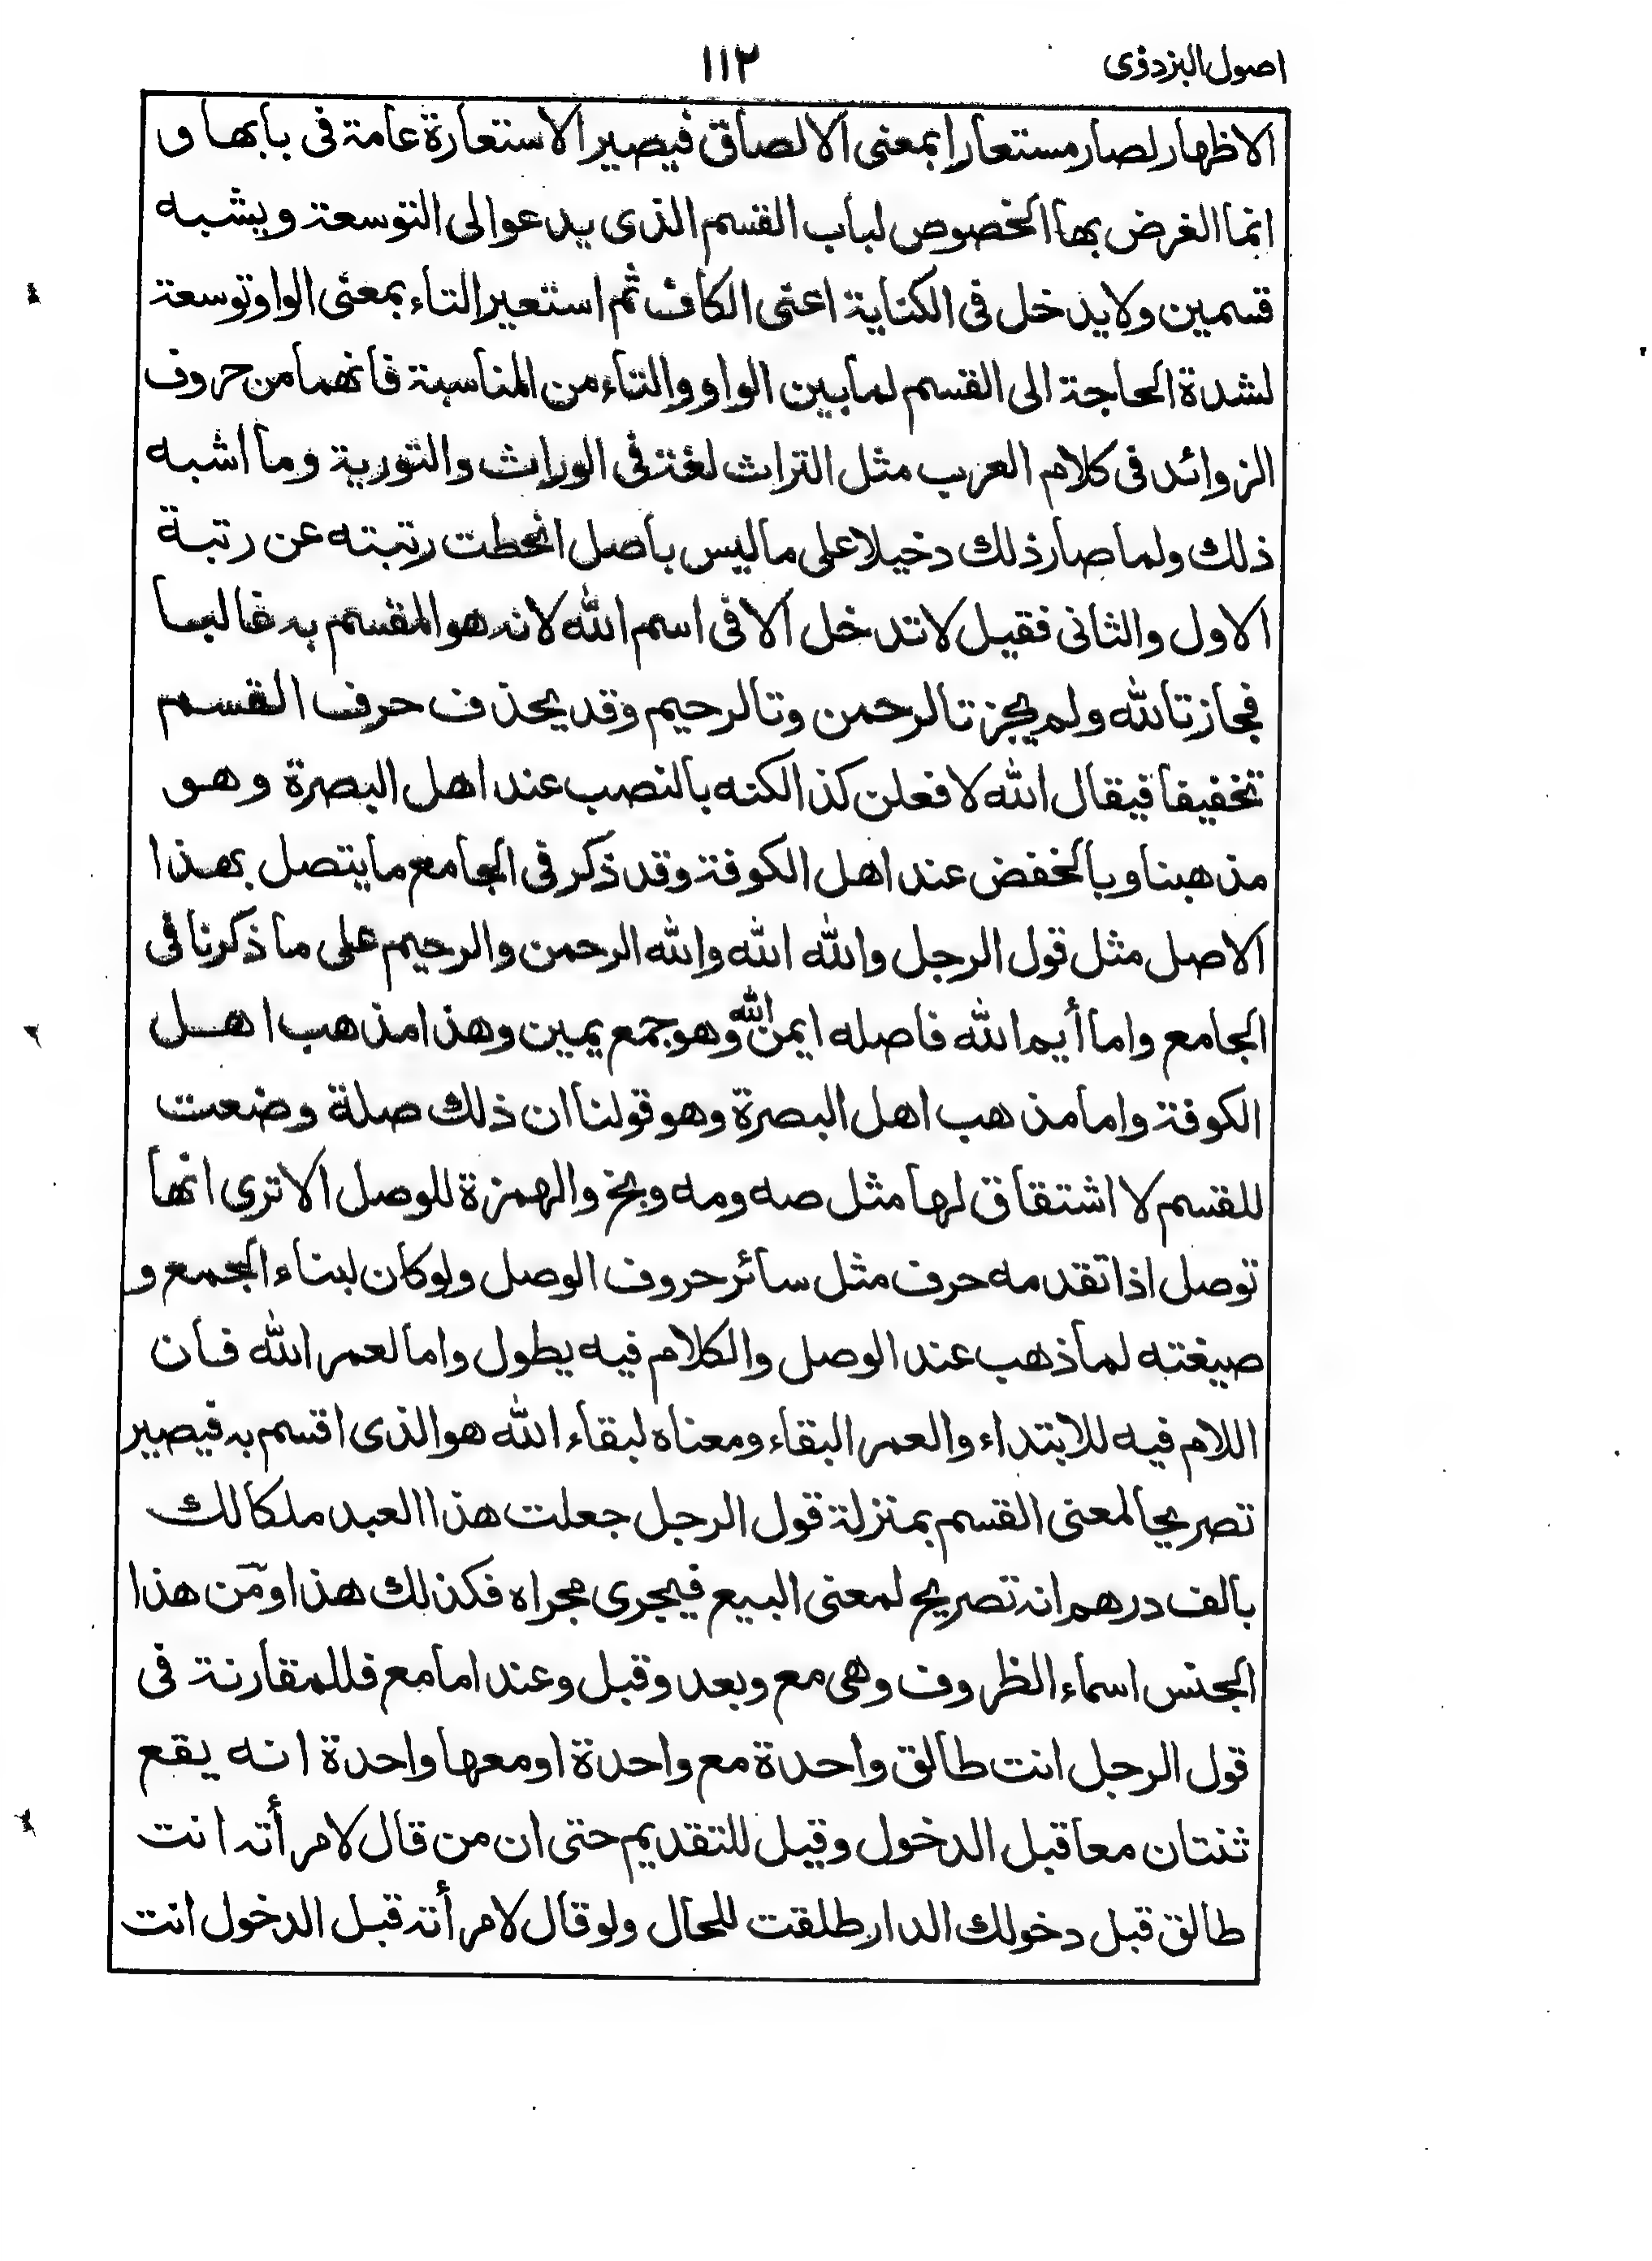 اصول البزدوى ١١٢
الاظهار لصار مستعارا بمعنى الالصاق فيصير الاستعارة عامة فى بابها و
انما الغرض بها الخصوص لباب القسم الذى يدعوا الى التوسعة ويشبه
قسمين ولا يدخل فى الكناية اعنى الكاف ثم استعير التاء بمعنى الواو توسعة
لشدة الحاجة الى القسم لما بين الواو والتاء من المناسبة فانهما من حروف
الزوائد فى كلام العرب مثل التراث لغة فى الوراث والتورية وما اشبه
ذلك ولما صار ذلك دخيلا على ما ليس باصل انحطت رتبته عن رتبة
الاول والثانى فقيل لا تدخل الا فى اسم الله لانه هو المقسم به غالبا
فجاز تالله ولم يجز تالرحمن وتالرحيم وقد يحذف حرف القسم
تخفيفا فيقال الله لافعلن كذا لكنه بالنصب عند اهل البصرة وهو
مذهبنا وبالخفض عند اهل الكوفة وقد ذكر فى الجامع ما يتصل بهذا
الاصل مثل قول الرجل والله الله والله الرحمن والرحيم على ما ذكرنا فى
الجامع واما أيم الله فاصله ايمن الله وهو جمع يمين وهذا مذهب اهل
الكوفة واما مذهب اهل البصرة وهو قولنا ان ذلك صلة وضعت
للقسم لا اشتقاق لها مثل صه ومه وبخ والهمزة للوصل الا ترى انها
توصل اذا تقدمه حرف مثل سائر حروف الوصل ولو كان لبناء الجمع و
صيغته لما ذهب عند الوصل والكلام فيه يطول واما لعمر الله فان
اللام فيه للابتداء والعمر البقاء ومعناه لبقاء الله هو الذى اقسم به فيصير
تصريحا لمعنى القسم بمنزلة قول الرجل جعلت هذا العبد ملكا لك
بالف درهم انه تصريح لمعنى البيع فيجرى مجراه فكذلك هذا ومن هذا
الجنس اسماء الظروف وهى مع وبعد وقبل وعند اما مع فللمقارنة فى
قول الرجل انت طالق واحدة مع واحدة او معها واحدة انه يقع
ثنتان معا قبل الدخول وقيل للتقديم حتى ان من قال لامرأته انت
طالق قبل دخولك الدار طلقت للحال ولو قال لامرأته قبل الدخول انت